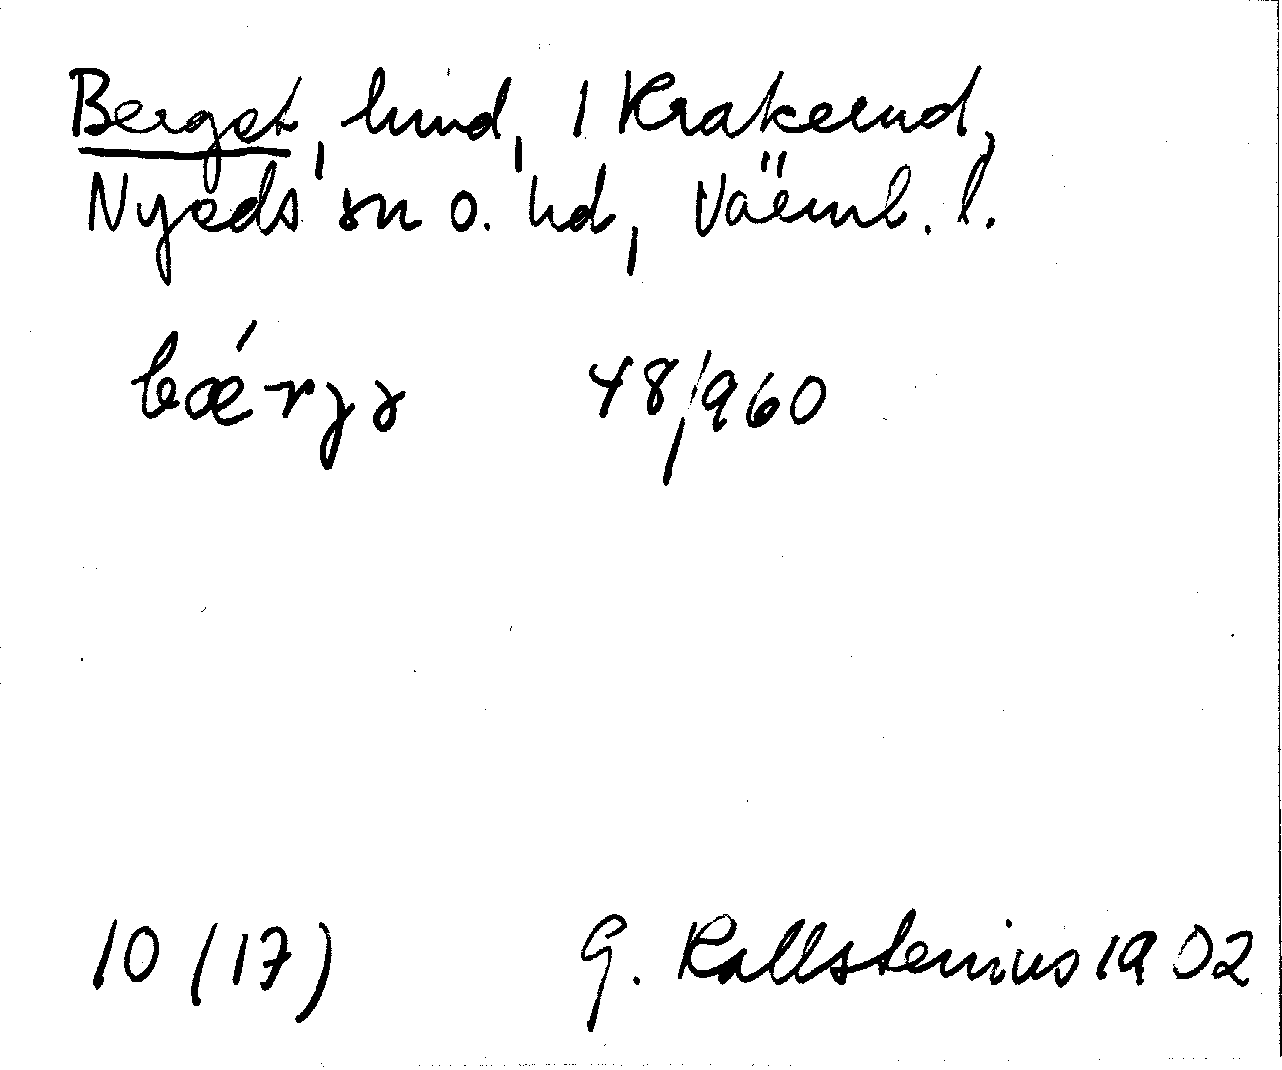 Berget, hmd, i Krakerud,
Nyeds sn o. hd, Värml. l.
bǽrɟɿ 48/960
10 (17) G. Kallstenius 1902